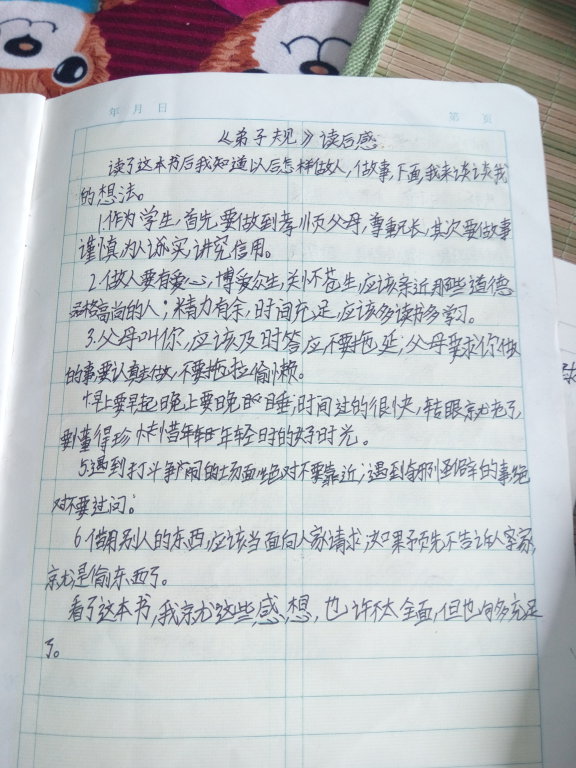 年 月 日
第 页
《弟子规》读后感
读了这本书后我知道以后怎样做人,做事,下面,我来谈谈我
的想法。
1.作为学生,首先,要做到孝顺父母,尊重兄长,其次要做事
谨慎,为人诚实,讲究信用。
2.做人要有爱心,博爱众生,关怀苍生,应该亲近那些道德
品格高尚的人;精力有余,时间充足,应该多读书多学习。
3.父母叫你,应该及时答应,不要拖延,父母要求你做
的事要认真去做,不要拖拉偷懒。
4.早上要早起晚上要晚睡,时间过的很快,转眼就老了,
要懂得珍惜年轻时的好时光。
5.遇到打斗争闹的场面绝对不要靠近;遇到邪僻的事绝
对不要过问。
6.借用别人的东西,应该当面向人家请求,如果预先不告诉人家,
就是偷东西了。
看了这本书,我就这些感想,也许不太全面,但也够充足
了。